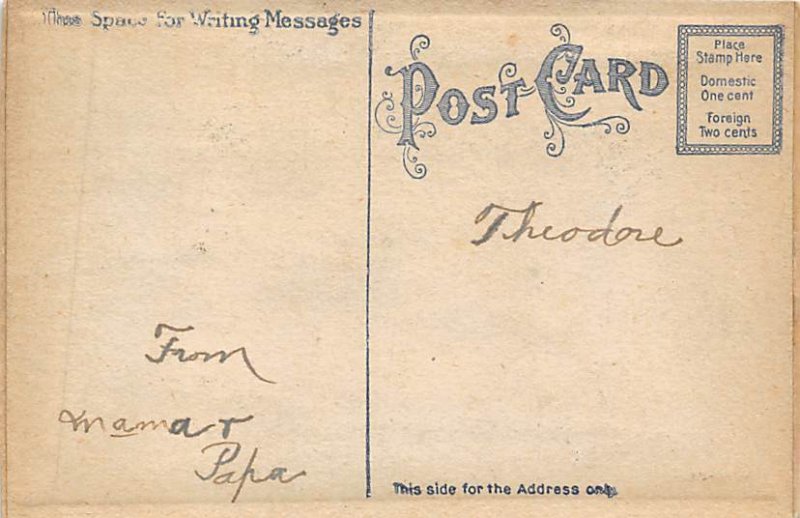 This Space for Writing Messages
POST CARD
Place
Stamp Here
Domestic
One cent
Foreign
Two cents
Theodore
From
mama r
Papa
This side for the Address only.